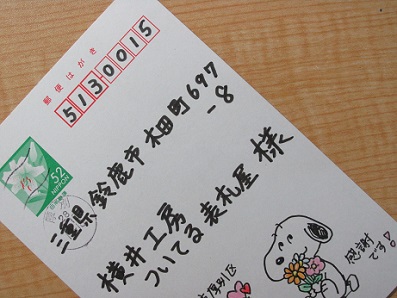 郵便はがき
5130015
52
NIPPON
三重県鈴鹿市木田町697
-8
横井工房
ついてる表札屋 様
感謝
です!